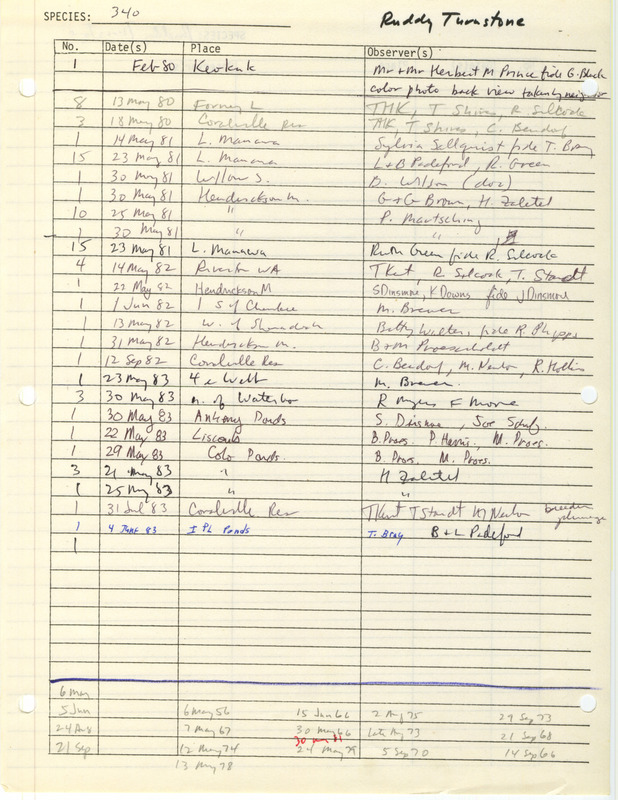 SPECIES: 340 Ruddy Turnstone
No. Date(s) Place Observer(s)
1 Feb 80 Keokuk Mr + Mr Herbert M Prince fide G. Black
color photo back view taken by neighbor
8 13 May 80 Forney L THK, T Shires, R. Silcock
3 18 May 80 Coralville Res THK T Shires, C. Bendorf
1 14 May 81 L. Manawa Sylvia Sellquist fide T. Bray
15 23 May 81 L. Manawa L+B Padelford, R. Green
1 30 May 81 Willow S. B. Wilson (doc)
1 30 May 81 Hendrickson M. G+G Brown, H. Zaletel
10 25 May 81 " P. Martsching
1 30 May 81 " "
15 23 May 81 L. Manawa Ruth Green fide R. Silcock
4 14 May 82 Riverton WA TKent, R. Silcock, T. Staudt
1 22 May 82 Hendrickson M S Dinsmore, K Downs fide J Dinsmore
1 1 Jun 82 1 S of M. Brewer
1 13 May 82 W. of Shenandoah Betty Walters, fide R. Phipps
1 31 May 82 Hendrickson M. B+M Proescholdt
1 12 Sep 82 Coralville Res C. Bendorf, M. Newlon, R. Hollis
1 23 May 83 4 e Webb M. Brewer
3 30 May 83 n. of Waterloo R Myers F Moore
1 30 May 83 Ankeny Ponds S. Dinsmore, Joe Schuf.
1 22 May 83 Liscomb B. Proes. P. Harris, M. Proes.
1 29 May 83 Colo Ponds. B. Proes. M. Proes.
3 21 May 83 " H Zaletel
1 25 May 83 " "
1 31 Jul 83 Coralville Res TKent T Staudt M Newlon breeding plumage
1 4 June 83 I P L Ponds T. Bray B + L Padelford
1
6 May
5 Jun 6 May 56 15 Jun 66 2 Aug 75 29 Sep 73
24 Aug 7 May 67 30 May 66 late Aug 73 21 Sep 68
30 May 81
21 Sep 12 May 74 24 May 79 5 Sep 70 14 Sep 66
13 May 78